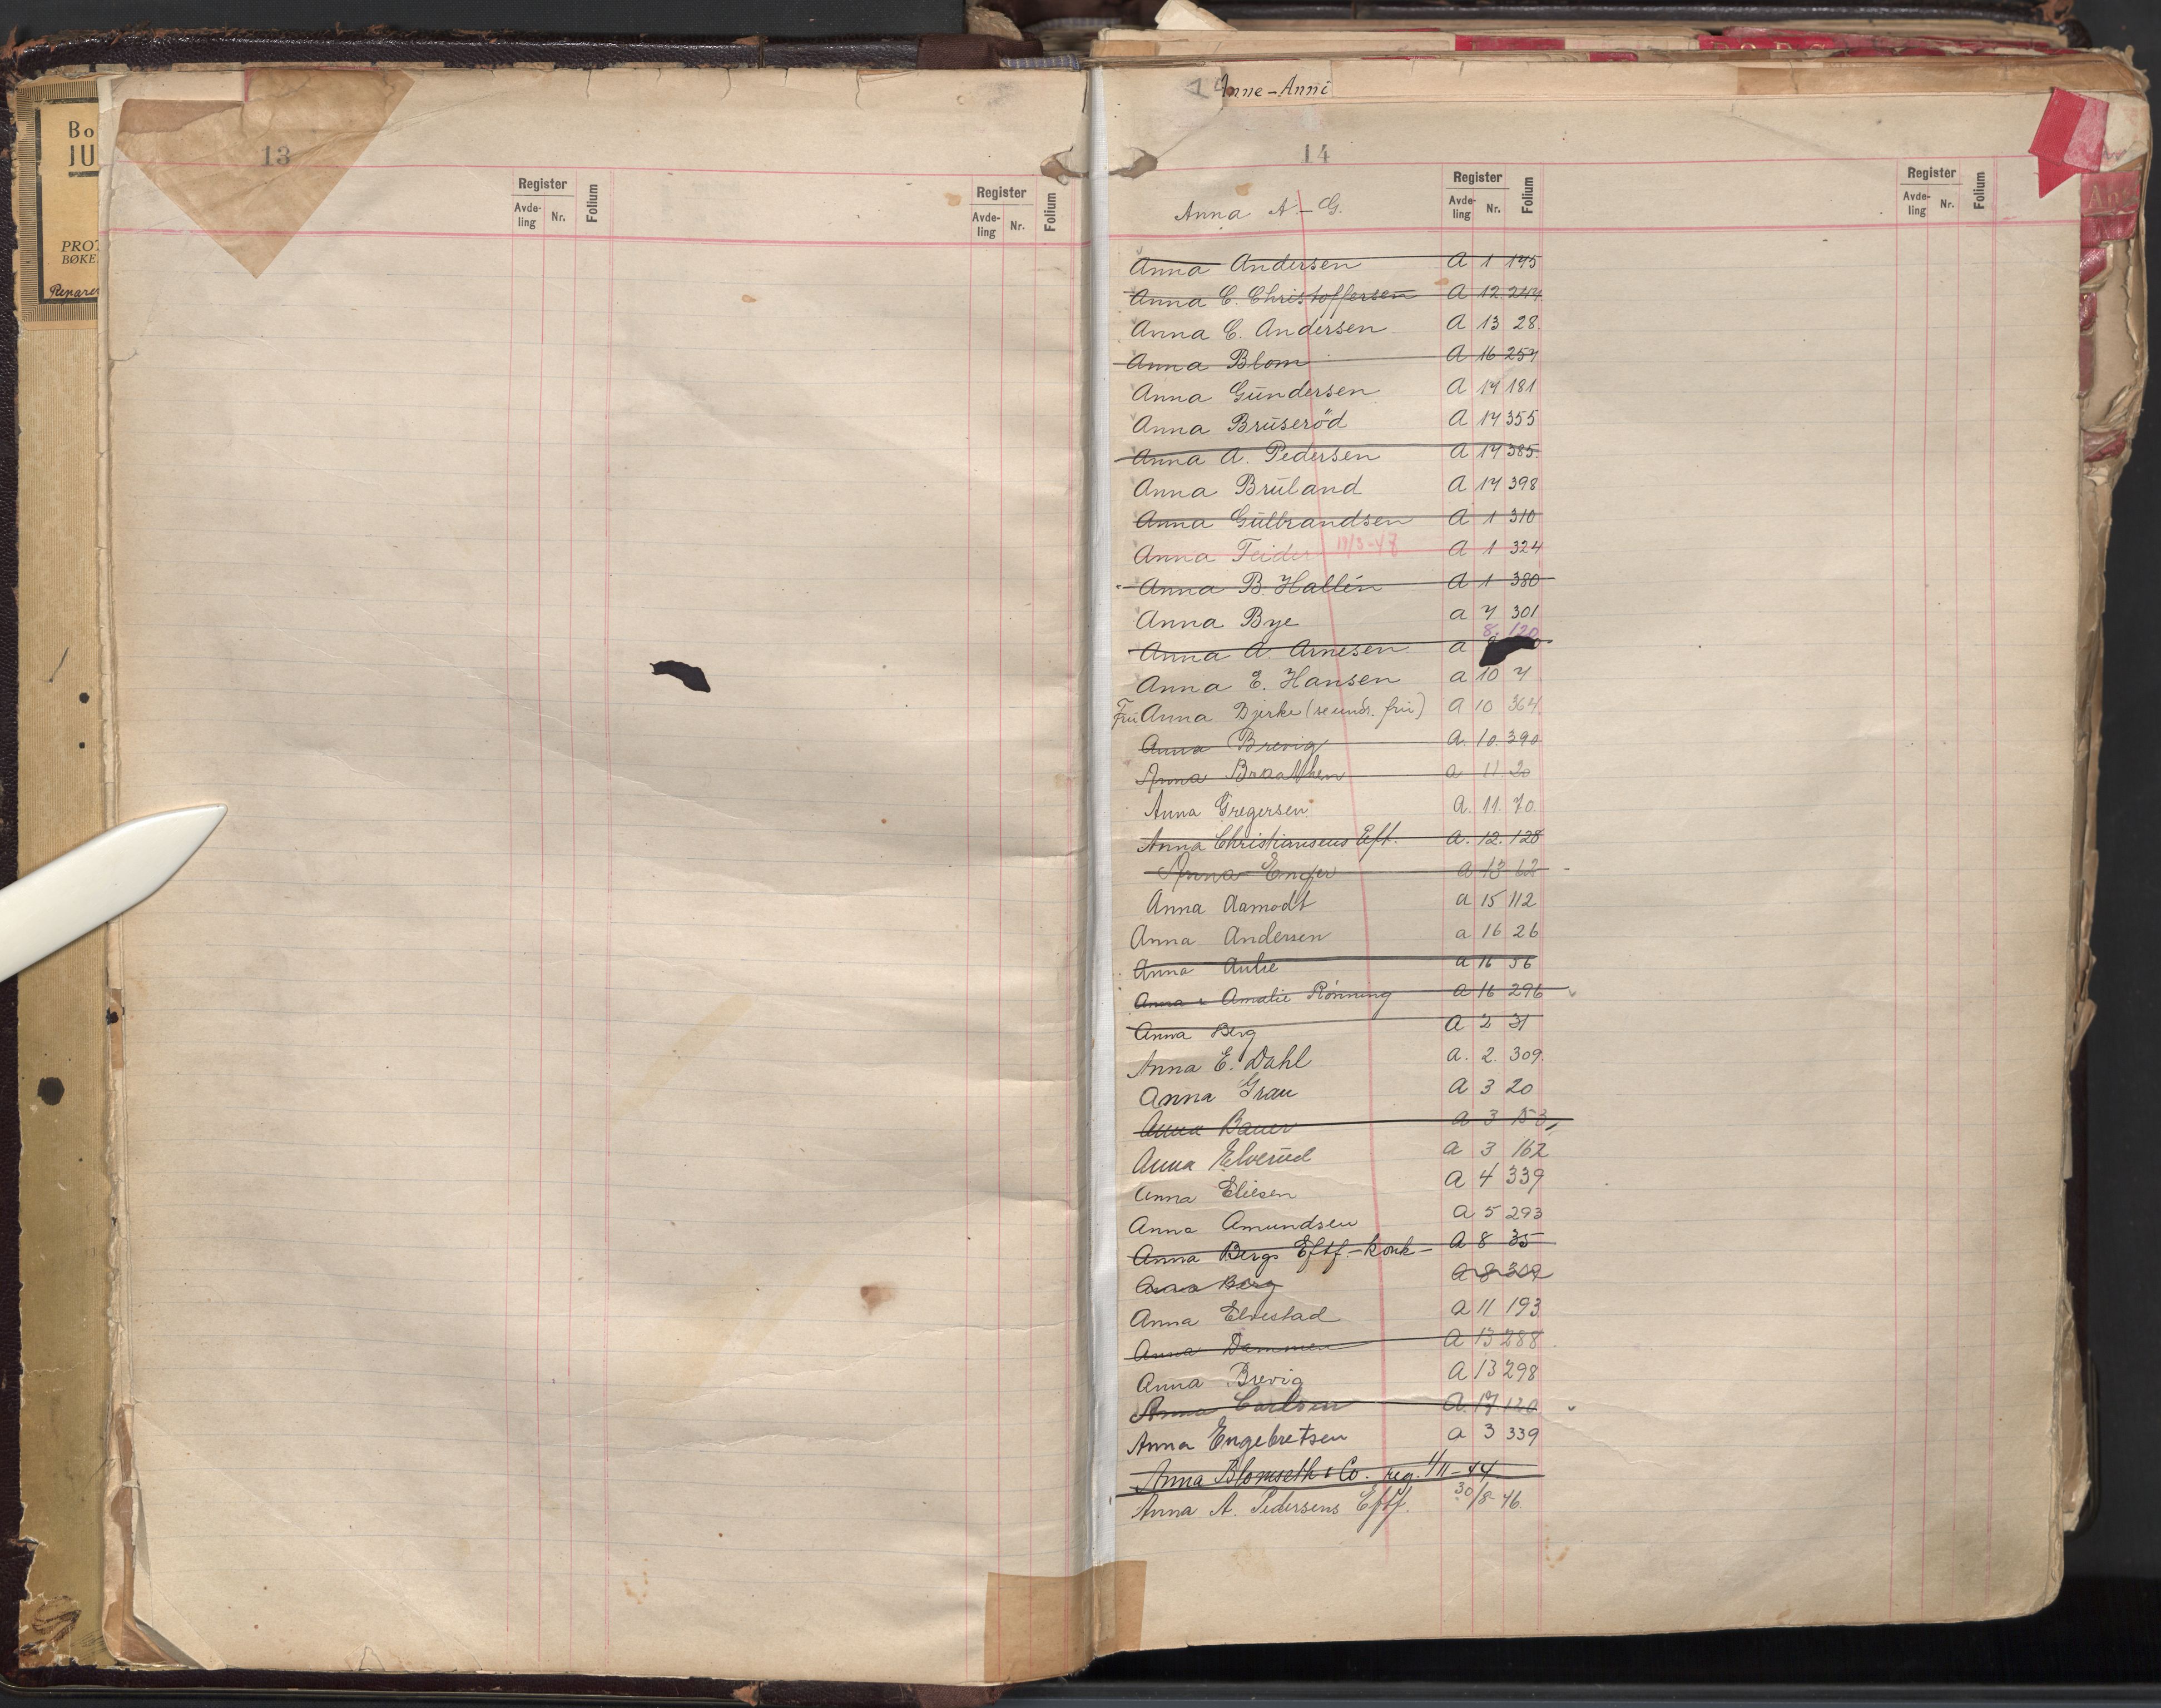 Bo
JU
PROT
BØKE
Reparer
13
Register
Avde-
ling
Nr.
Folium
Register
Avde-
ling
Nr.
Folium
Anne - Anni
14
Anna A - G.
Register
Avde-
ling
Nr.
Folium
Register
Avde-
ling
Nr.
Folium
Anna Andersen A 1 145
Anna C. Christoffersen A 12 244
Anna C. Andersen A 13 28.
Anna Blom A 16 257
Anna Gundersen A 17 181
Anna Bruserød A 17 355
Anna A. Pedersen A 17 385.
Anna Bruland A 17 398
Anna Gulbrandsen A 1 310
Anna Feider 19/3-48 A 1 324
Anna B. Hallén A 1 380
Anna Bye a 7 301
8. 120
Anna A. Arnesen a
Anna E. Hansen a 10 7
Fru Anna Bjerke (se under fru) A 10 364.
Anna Brevig A. 10. 390
Anna Braathen a 11 20
Anna Gregersen A. 11. 70.
Anna Christiansens Eft. A. 12. 128
Anna Enger a 13 62
Anna Aamodt a 15 112
Anna Andersen a 16 26
Anna Aulie a 16 56
Anna & Amalie Rönning A 16 296
Anna Berg A 2 31
Anna E. Dahl A. 2. 309.
Anna Grau A 3 20
Anna Bauer a 3 153
Anna Elverud a 3 162
Anna Eliesen A 4 339
Anna Amundsen a 5 293
Anna Bergs Eftf. - konk - A 8 35
Anna Berg a 8 302
Anna Elvestad a 11 193
Anna Dammen A 13 288
Anna Brevig A 13 298
Anna Carlsen A. 17 120
Anna Engebretsen a 3 339
Anna Blomseth & Co. reg. 1/11 - 44
Anna A. Pedersens Eftf. 30/8-46.